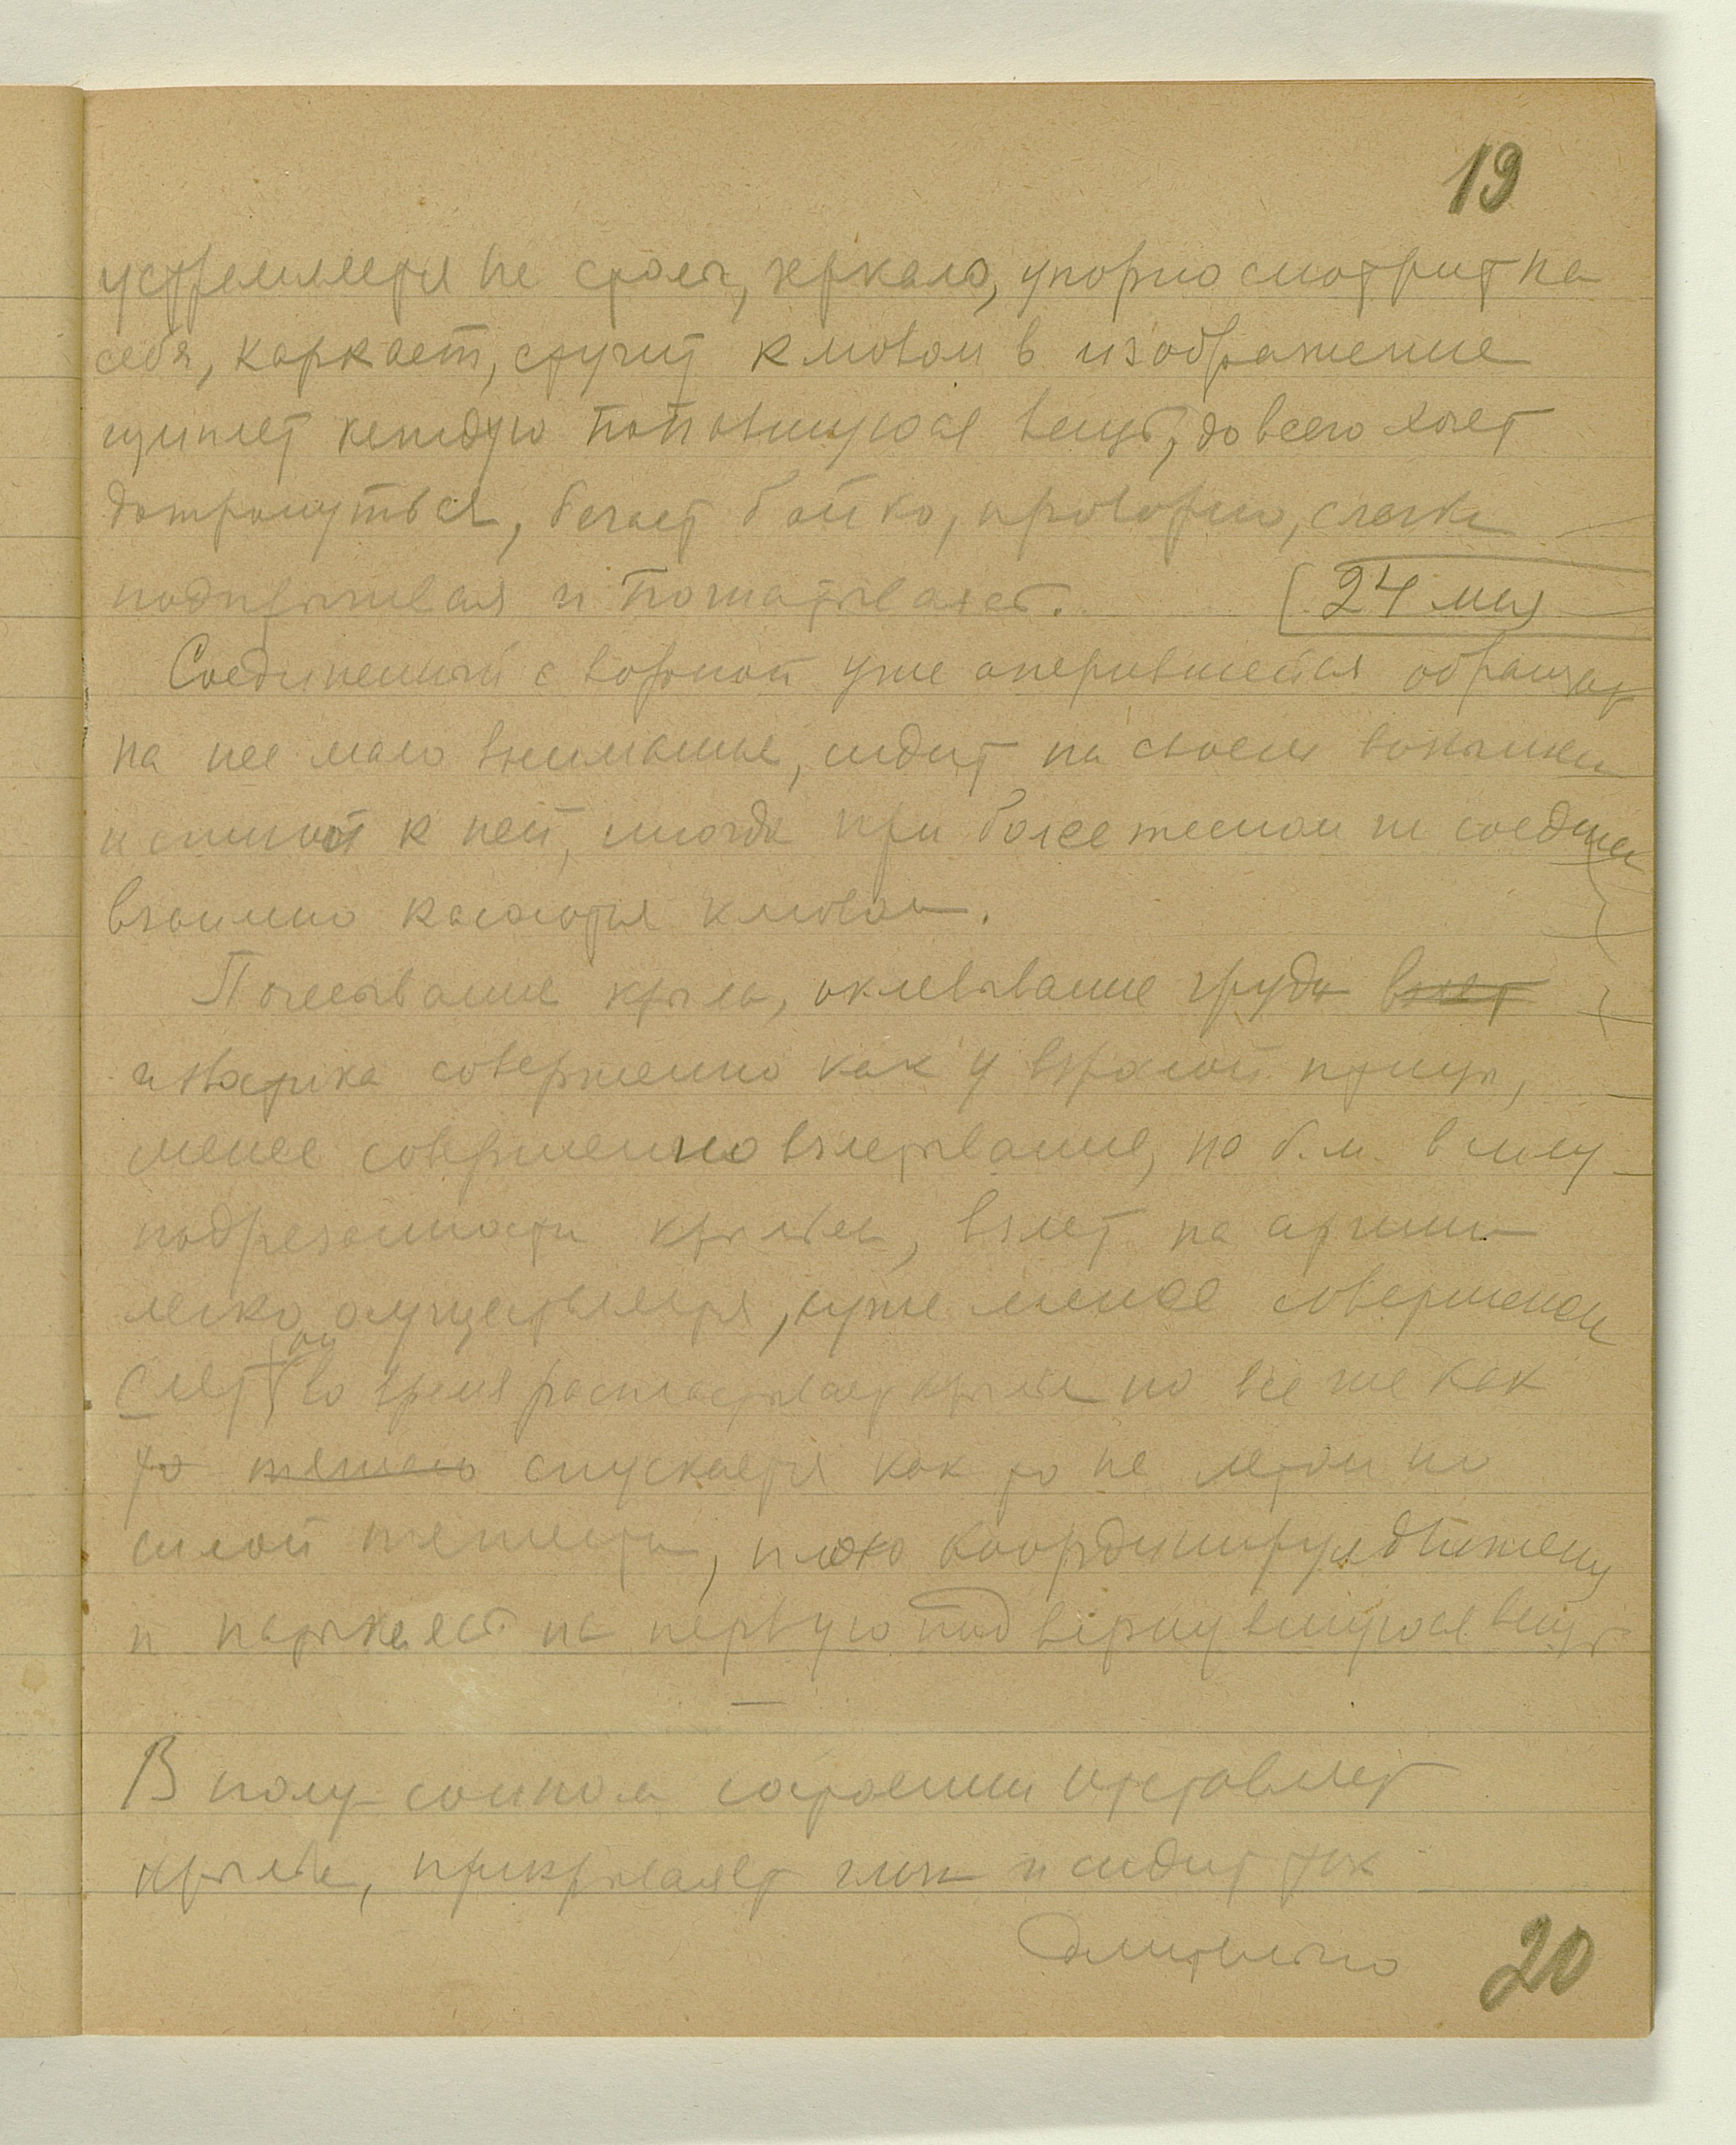 19
устремляется на столы, зеркало, упорно смотрит на
себя, каркает, стучит клювом в изображение
щиплет каждую попавшуюся вещь, до всего хочет
дотронуться, бегает бойко, проворно, слегка
подпрыгивая и пошатываясь.
24 мая
Соединенный с вороной уже оперившейся обращает
на нее мало внимания, сидит на своем
и спиной к ней, иногда при более тесном их соединен
взаимно касаются клювом.
Почесывание крыла, оклевывание груди взлет
и чистка совершенно как у взрослой птицы,
менее совершенно взлетывание, но б.м. в силу
подрезанности крыльев, взлет на аршин
легко осуществляется, хуже менее совершенен
слет он во время распластывает крылья но все же как
то тяжело спускается как то не летом но
силой тяжести, плохо координируя движения
и натыкаясь на первую подвернувшуюся вещь
В полу-сонном состоянии отставляет
крылья, прикрывает глаза и сидит так
длительно
20